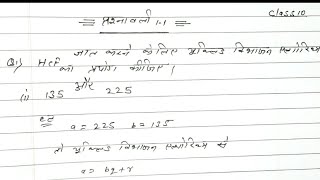 Class 10
प्रश्नावली 1.1
Q1) HCF ज्ञात करने के लिए यूक्लिड विभाजन एल्गोरिथ्म
का प्रयोग कीजिए।
(i) 135 और 225
हल
a = 225 b = 135
तो यूक्लिड विभाजन एल्गोरिथ्म से
a = bq+r